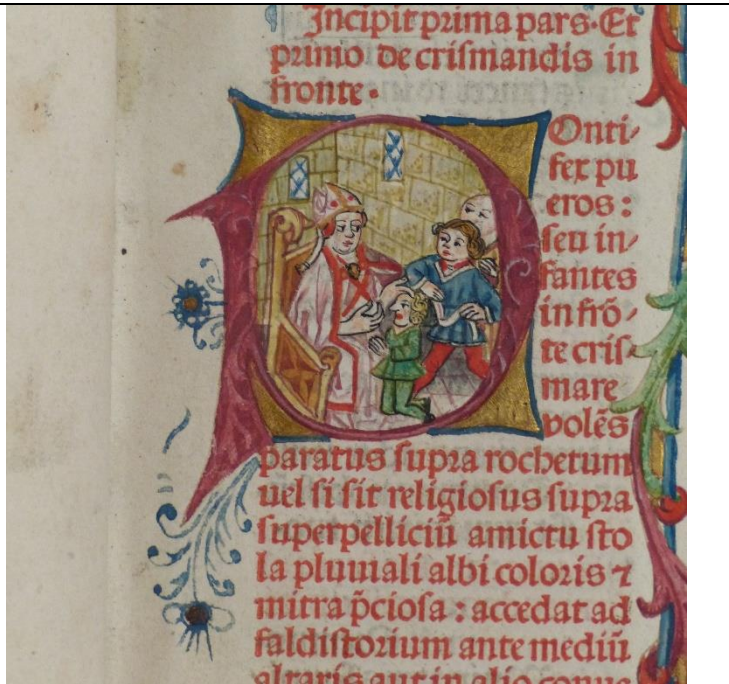 Incipit prima pars. Et
primo de crismandis in
fronte.
Onti/
fex pu
eros:
seu in/
fantes
in frō/
te cris/
mare
volēs
paratus supra rochetum
uel si sit religiosus supra
superpelliciū amictu sto
la pluuiali albi coloris ⁊
mitra p̄ciosa: accedat ad
faldistorium ante mediū
altaris aut in alio conue